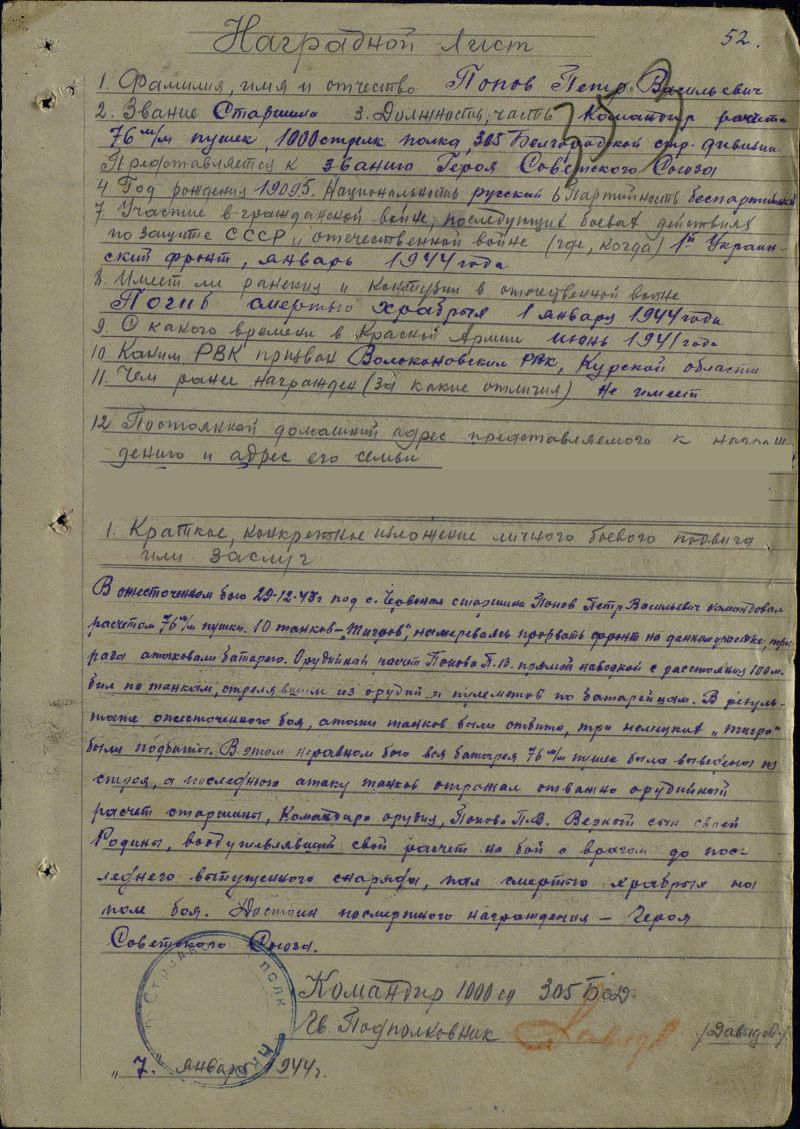 52.
Наградной лист
1. Фамилия, имя и отчество Попов Петр Васильевич
2. Звание Старшина 3. Должность, часть Командир расчета
76 м/м пушек, 1000 стрелк полка, 305 Белгородской стр. дивизии
Представляется к званию Героя Советского Союза
4. Год рождения 1909 5. Национальность русский 6 Партийность беспартийный
7. Участие в гражданской войне, последующих боевых действиях
по защите СССР и отечественной войне (где, когда) 1й Украин-
ский фронт, январь 1944 года
8. Имеет ли ранения и контузии в отечественной войне
Погиб смертью храбрых 1 января 1944 года
9. С какого времени в Красной Армии июнь 1941 года
10. Каким РВК призван Волоконовским РВК, Курской области
11. Чем ранее награжден (за какие отличия) не имеет
12. Постоянной домашний адрес представляемого к награж
дению и адрес его семьи
1. Краткое, конкретное изложение личного боевого подвига
или заслуг
В ожесточенном бою 29-12-43г под с. Червоная старшина Попов Петр Васильевич командовал
расчетом 76 м/м пушки. 10 танков-„Тигров", намереваясь прорвать фронт на данном участке, три
раза атаковали батарею. Орудийный расчет Попова П.В. прямой наводкой с расстояния 100 м.
бил по танкам, стрелявшим из орудий и пулеметов по батарейцам. В резуль-
тате ожесточенного боя, атаки танков были отбиты, три немецких „тигра"
были подбиты. В этом неравном бою вся батарея 76 м/м пушек была выведена из
строя, а последнюю атаку танков отражал отважно орудийный
расчет старшины, Командира орудия, Попова П.В. Верный сын своей
Родины, воодушевлявший свой расчет на бой с врагом до пос-
леднего выпущенного снаряда, пал смертью храбрых на
поле боя. Достоин посмертного награждения – Героя
Советского Союза.
Командир 1000 сп 305 БсД.
Гв. Подполковник /Давыдов/
„7." января 1944г.